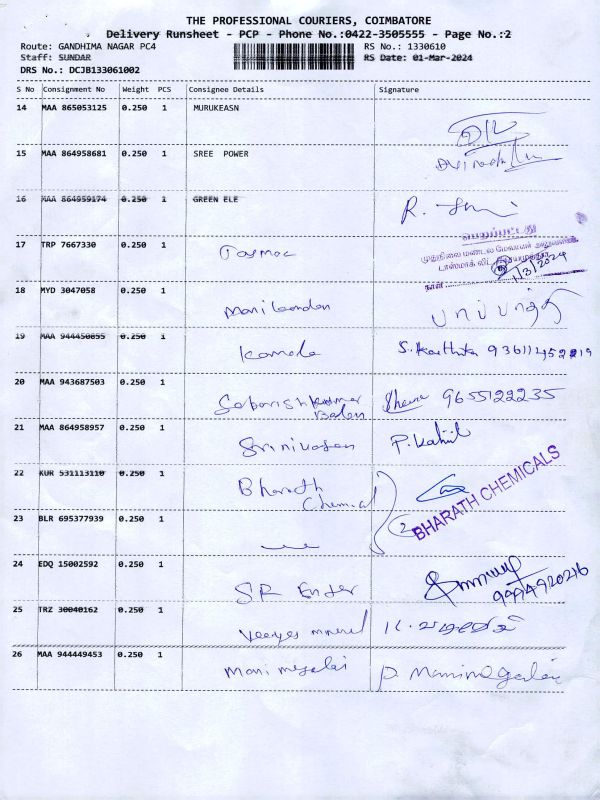 THE PROFESSIONAL COURIERS, COIMBATORE
Delivery Runsheet - PCP - Phone No.:0422-3505555 - Page No.:2
Route: GANDHIMA NAGAR PC4 RS No.: 1330610
Staff: SUNDAR RS Date: 01-Mar-2024
DRS No.: DCJB133061002
S No Consignment No Weight PCS Consignee Details Signature
14 MAA 865053125 0.250 1 MURUKEASN
15 MAA 864958681 0.250 1 SREE POWER
16 MAA 864959174 0.250 1 GREEN ELE
R.
பெறப்பட்டது
17 TRP 7667330 0.250 1 Tasmac
நாள்
1/3/2024
18 MYD 3047058 0.250 1 Manikandan
19 MAA 944450855 0.250 1 Kamala S. Karthika
20 MAA 943687503 0.250 1 Sabarish kumar 9655122235
Balan
21 MAA 864958957 0.250 1 Srinivasan
22 KUR 531113110 0.250 1 Bharath
Chemical
BHARATH CHEMICALS
23 BLR 695377939 0.250 1
2
24 EDQ 15002592 0.250 1 SR Enter
25 TRZ 30040162 0.250 1 Veeyes mineral
26 MAA 944449453 0.250 1 Mani megalai P. Manimegalai